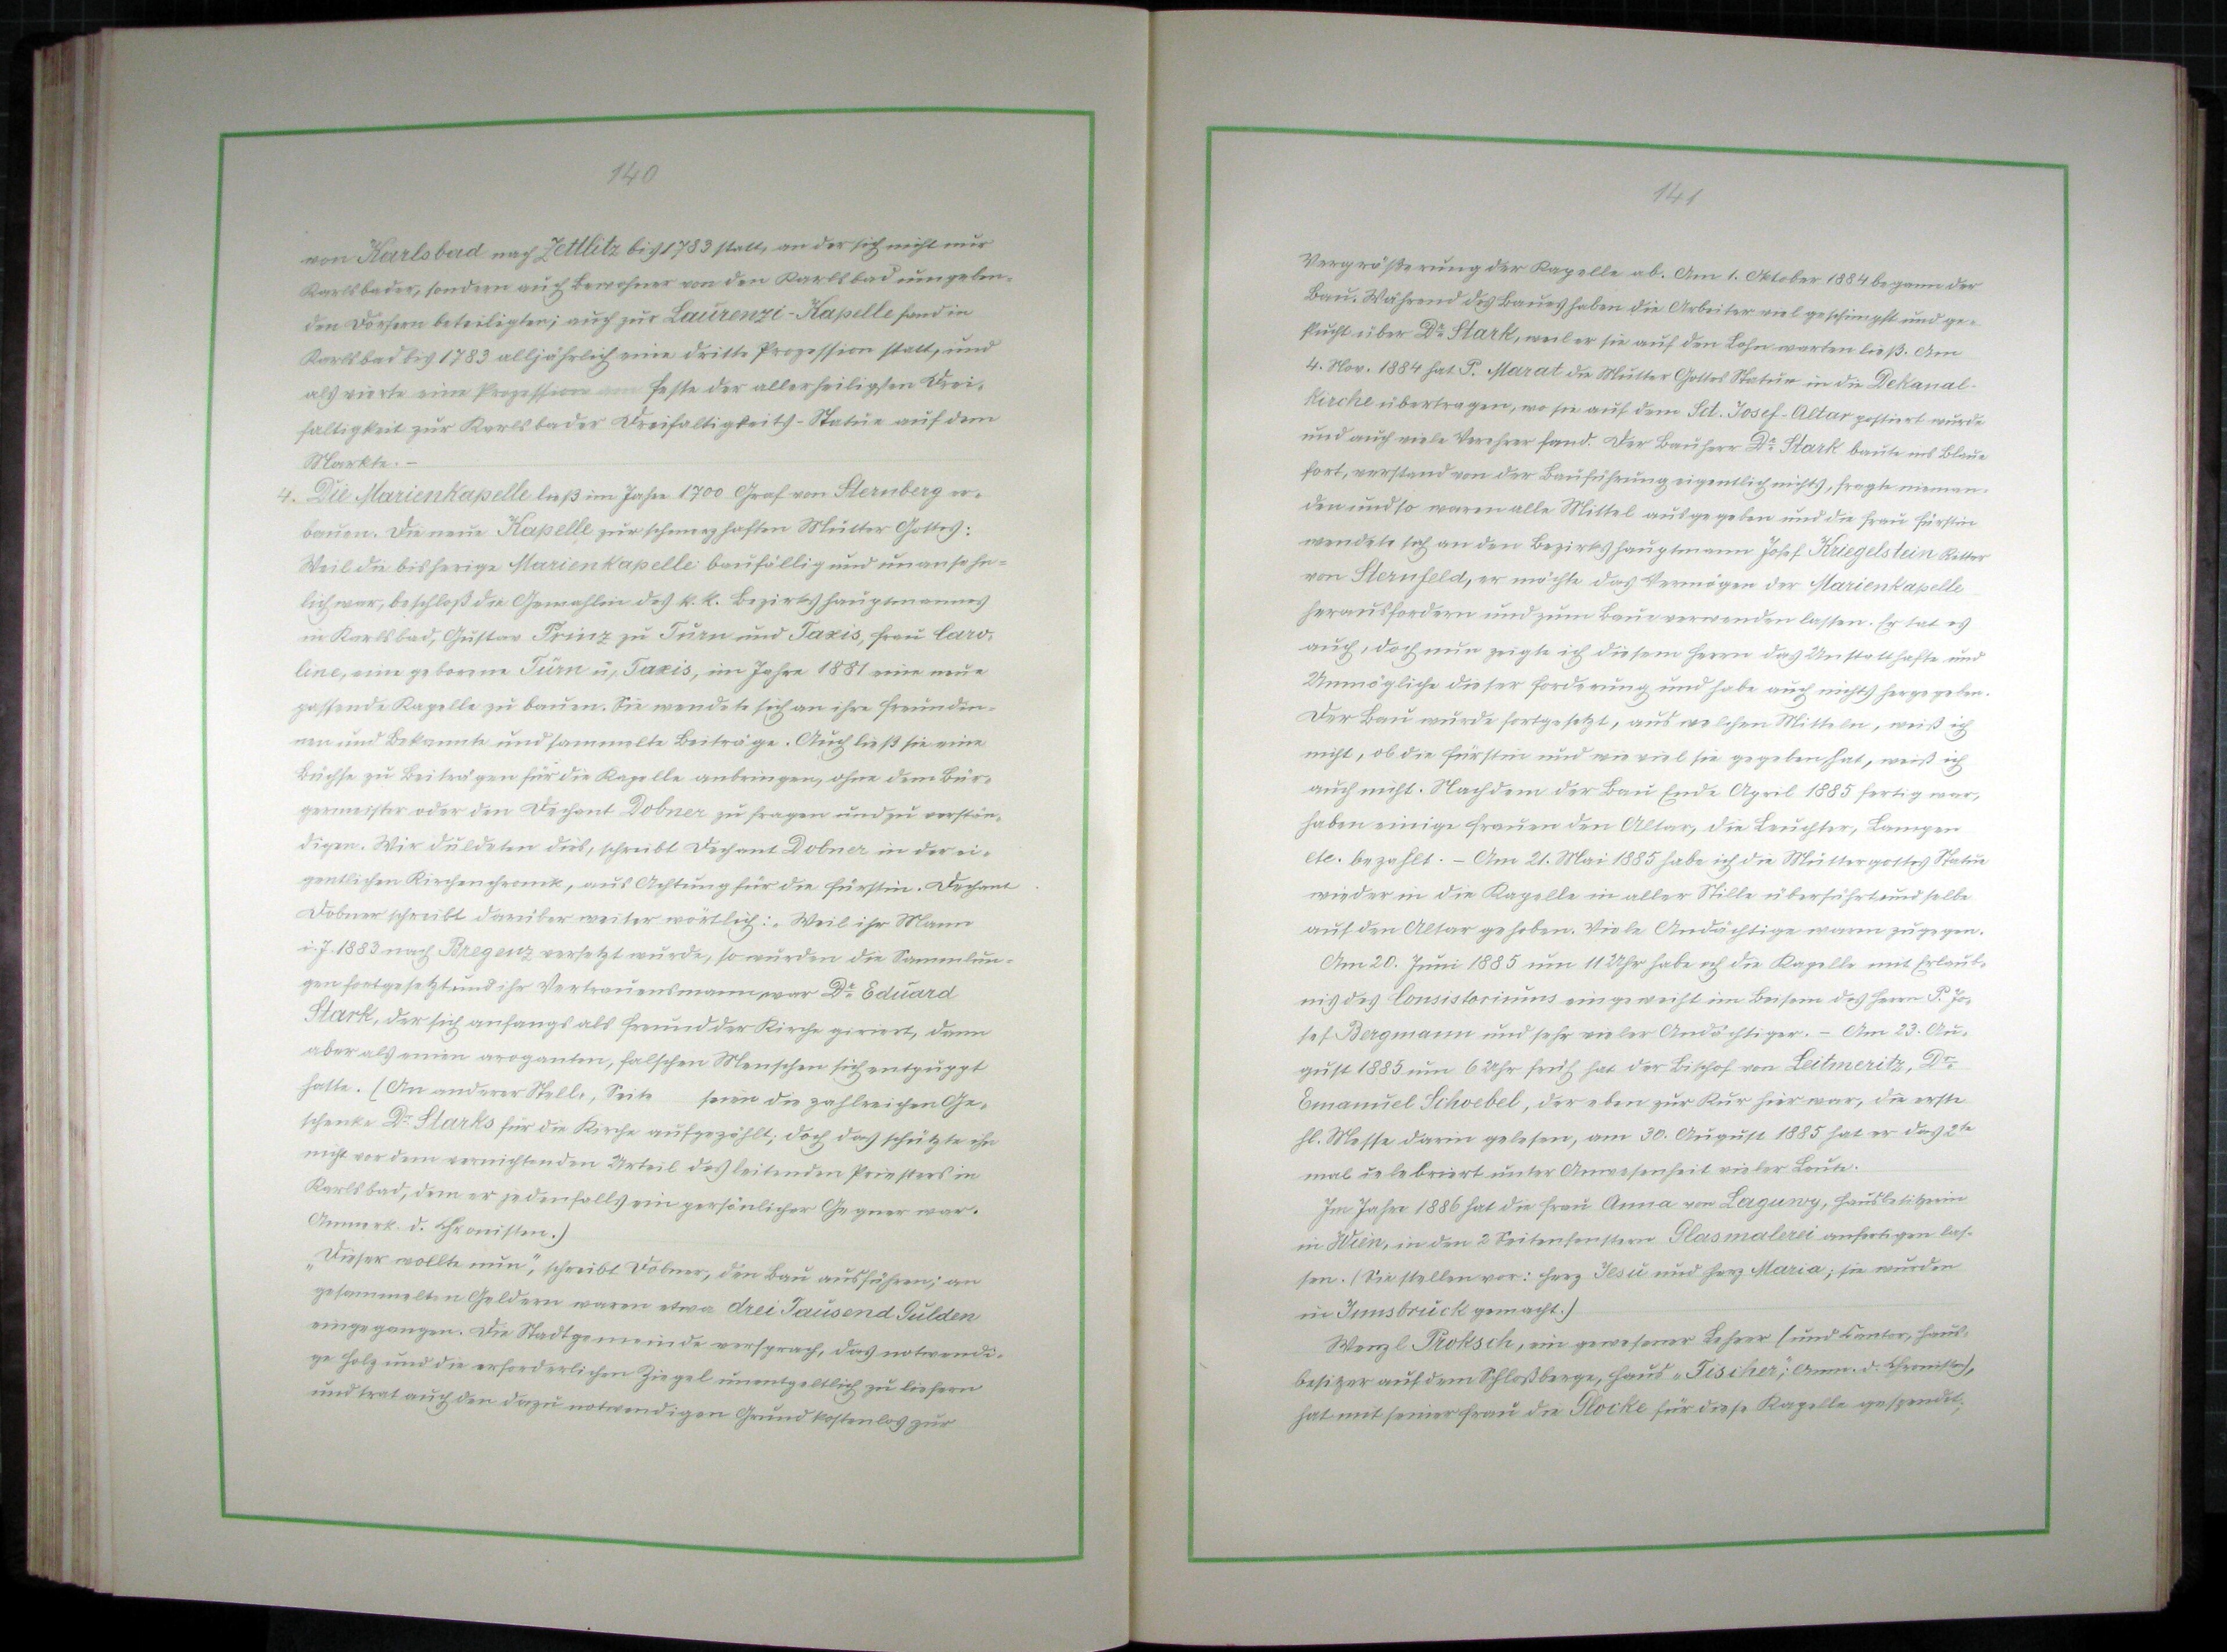 140
von Karlsbad nach Zettlitz bis 1783 statt, an der sich nicht nur
Karlsbader, sondern auch Bewohner von den Karlsbad umgeben-
den Dörfern beteiligten; auch zur Laurenzi-Kapelle fand in
Karlsbad bis 1783 alljährlich eine dritte Prozession statt, und
als vierte eine Prozession am Feste der allerheiligsten Drei-
faltigkeit zur Karlsbader Dreifaltigkeits-Statue auf dem
Markte. –
4. Die Marienkapelle ließ im Jahre 1700 Graf von Sternberg er-
bauen. Die neue Kapelle zur schmerzhaften Mutter Gottes:
Weil die bisherige Marienkapelle baufällig und unansehn-
lich war, beschloß die Gemahlin des k. k. Bezirkshauptmannes
in Karlsbad, Gustav Prinz zu Turn und Taxis, Frau Caro-
line, eine geborene Turn u. Taxis, im Jahre 1881 eine neue
passende Kapelle zu bauen. Sie wendete sich an ihre Freundin-
nen und Bekannte und sammelte Beiträge. Auch ließ sie eine
Büchse zu Beiträgen für die Kapelle anbringen, ohne dem Bür-
germeister oder den Dechant Dobner zu fragen und zu verstän-
digen. Wir duldeten dies, schreibt Dechant Dobner in der ei-
gentlichen Kirchenchronik, aus Achtung für die Fürstin. Dechant
Dobner schreibt darüber weiter wörtlich: „Weil ihr Mann
i. J. 1883 nach Bregenz versetzt wurde, so wurden die Sammlun-
gen fortgesetzt und ihr Vertrauensmann war Dr. Eduard
Stark, der sich anfangs als Freund der Kirche giriert, dann
aber als einen aroganten, falschen Menschen sich entpuppt
hatte. (An anderer Stelle, Seite seien die zahlreichen Ge-
schenke Dr. Starks für die Kirche aufgezählt; doch das schützte ihn
nicht vor dem vernichtenden Urteil des leitenden Priesters in
Karlsbad, dem er jedenfalls ein persönlicher Gegner war.
Anmerk. d. Chronisten.)
„Dieser wollte nun“, schreibt Dobner, den Bau ausführen; an
gesammelten Geldern waren etwa drei Tausend Gulden
eingegangen. Die Stadtgemeinde versprach, das notwendi-
ge Holz und die erforderlichen Ziegel unentgeltlich zu liefern
und trat auch den dazu notwendigen Grund kostenlos zur
141
Vergrößerung der Kapelle ab. Am 1. Oktober 1884 begann der
Bau. Während des Baues haben die Arbeiter viel geschimpft und ge-
flucht über Dr. Stark, weil er sie auf den Lohn warten ließ. Am
4. Nov. 1884 hat P. Marat die Mutter Gottes Statue in die Dekanal-
kirche übertragen, wo sie auf dem Sct. Josef-Altar postiert wurde
und auch viele Verehrer fand. Der Bauherr Dr. Stark baute ins Blaue
fort, verstand von der Bauführung eigentlich nichts, fragte nieman-
den und so waren alle Mittel ausgegeben und die Frau Fürstin
wendete sich an den Bezirkshauptmann Josef Kriegelstein Ritter
von Sternfeld, er möchte das Vermögen der Marienkapelle
herausfordern und zum Baue verwenden lassen. Er tat es
auch, doch nun zeigte ich diesem Herrn das Unstatthafte und
Unmögliche dieser Forderung und habe auch nichts hergegeben.
Der Bau wurde fortgesetzt, aus welchen Mitteln, weiß ich
nicht, ob die Fürstin und wie viel sie gegeben hat, weiß ich
auch nicht. Nachdem der Bau Ende April 1885 fertig war,
haben einige Frauen den Altar, die Leuchter, Lampen
etc. bezahlt. – Am 21. Mai 1885 habe ich die Muttergottes Statue
wieder in die Kapelle in aller Stille überführt und selbe
auf den Altar gehoben. Viele Andächtige waren zugegen.
Am 20. Juni 1885 um 11 Uhr habe ich die Kapelle mit Erlaub-
nis des Consistoriums eingeweiht im Beisein des Herrn P. Jo-
sef Bergmann und sehr vieler Andächtiger. – Am 23. Au-
gust 1885 um 6 Uhr früh hat der Bischof von Leitmeritz, Dr.
Emanuel Schoebel, der eben zur Kur hier war, die erste
hl. Messe darin gelesen, am 30. August 1885 hat er das 2te
mal celebriert unter Anwesenheit vieler Leute.
Im Jahre 1886 hat die Frau Anna von Lagunoy, Hausbesitzerin
in Wien, in den 2 Seitenfenstern Glasmalerei anfertigen las-
sen. (Sie stellen vor: Herz Jesu und Herz Maria; sie wurden
in Innsbruck gemacht.)
Wenzl Proksch, ein gewesener Lehrer (und Cantor, Haus-
besitzer auf dem Schloßberge, Haus „Fischer“; Anm. d. Chronisten),
hat mit seiner Frau die Glocke für diese Kapelle gespendet;